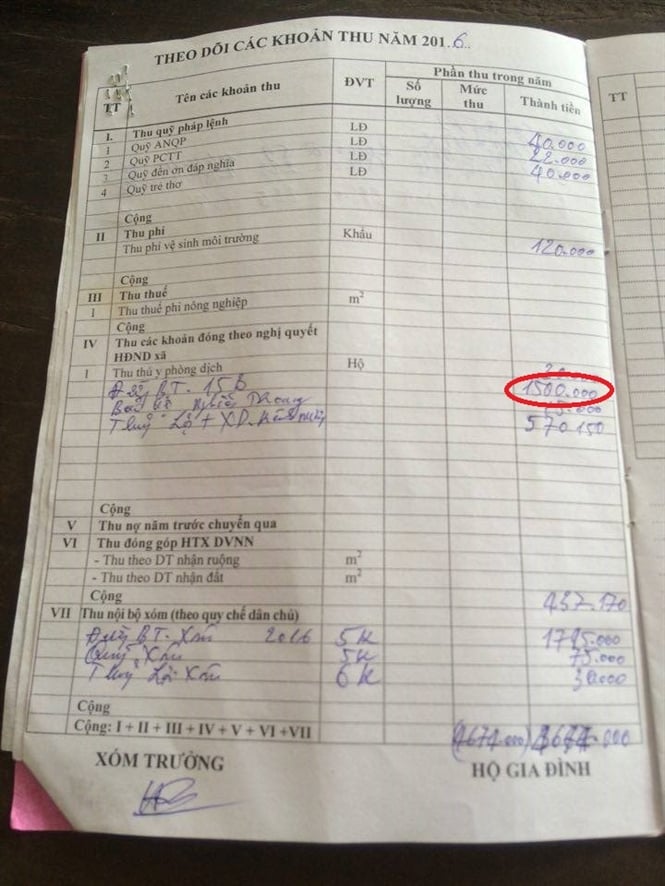 THEO DÕI CÁC KHOẢN THU NĂM 2016
TT Tên các khoản thu ĐVT Phần thu trong năm
Số lượng Mức thu Thành tiền
I. Thu quỹ pháp lệnh
1 Quỹ ANQP LĐ 40.000
2 Quỹ PCTT LĐ 22.000
3 Quỹ đền ơn đáp nghĩa LĐ 40.000
4 Quỹ trẻ thơ LĐ
Cộng
II Thu phí
Thu phí vệ sinh môi trường Khẩu 120.000
Cộng
III Thu thuế
1 Thu thuế phi nông nghiệp m²
Cộng
IV Thu các khoản đóng theo nghị quyết
HĐND xã
1 Thu thú y phòng dịch Hộ
Đường BT. 15B 1500.000
Thuỷ Lợi + XD. 570 150
Cộng
V Thu nợ năm trước chuyển qua
VI Thu đóng góp HTX DVNN
- Thu theo DT nhận ruộng m²
- Thu theo DT nhận đất m²
Cộng 437.170
VII Thu nội bộ xóm (theo quy chế dân chủ)
Đường BT. Xóm 2016 5K 1795.000
Quỹ Xóm 5K 75.000
Thuỷ Lợi Xóm 6K 30.000
Cộng
Cộng: I + II + III + IV + V + VI +VII (4671.000)
XÓM TRƯỞNG HỘ GIA ĐÌNH
TT